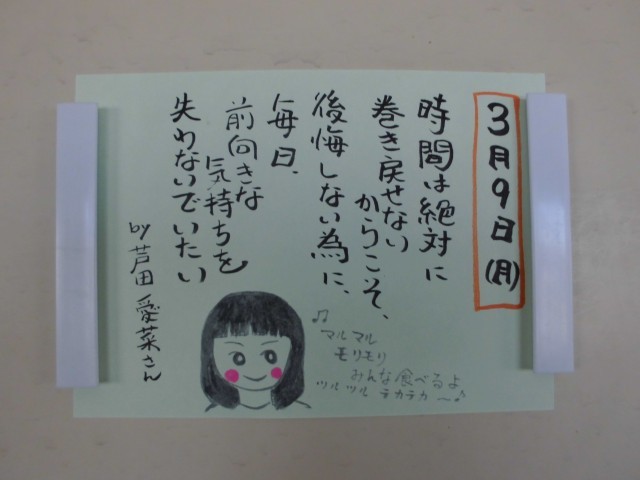 3月9日(月)
時間は絶対に
巻き戻せない
からこそ、
後悔しない為に、
毎日、
前向きな
気持ちを
失わないでいたい
by 芦田愛菜さん
♫
マルマル
モリモリ
みんな食べるよ
ツルツル テカテカ 〜♪